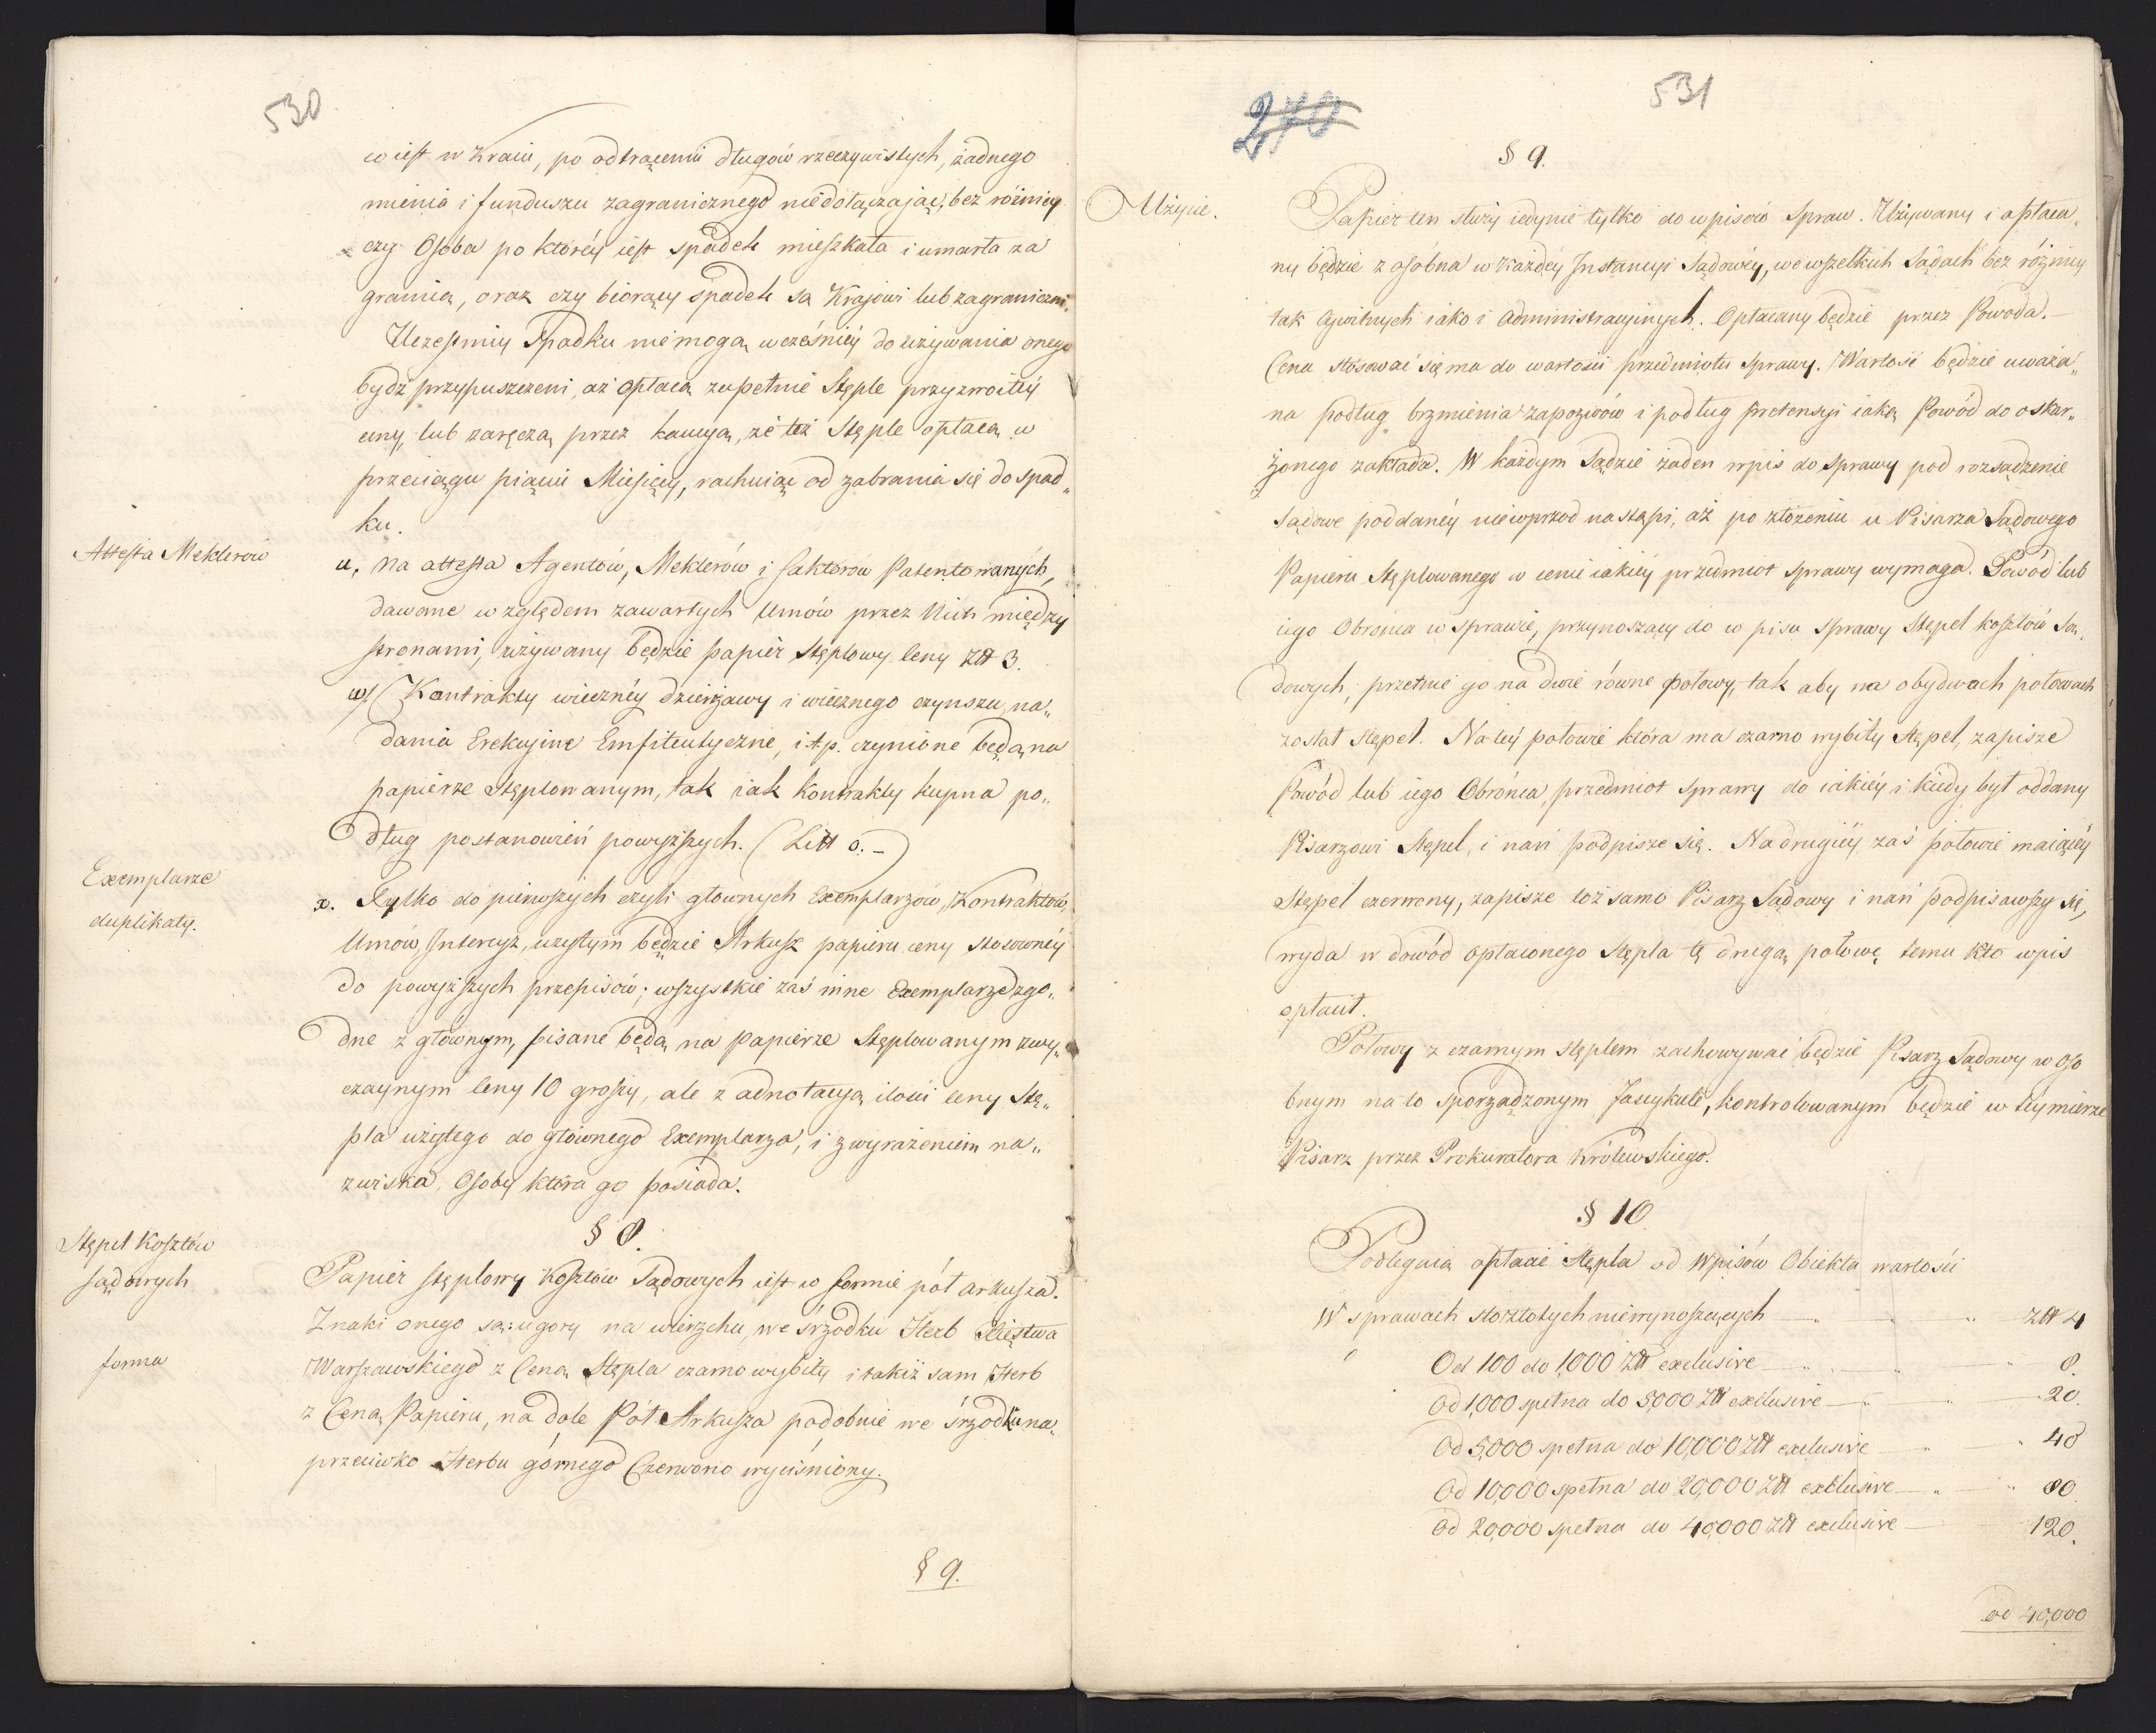 530
co iest w Kraiu, po odtrąceniu długów rzeczywistych, żadnego
mienia i funduszu zagranicznego niedołączaiąc, bez różnicy
czy Osoba po któréy iest spadek mieszkała i umarła za
granicą, oraz czy biorący spadek są Krajowi lub zagraniczni.
Uczestnicy Spadku niemogą wcześniéy do używania onego
bydź przypuszczeni, aż opłacą zupełnie Stęple przyzwoitéy
ceny, lub zaręczą przez kaucyą, że też Stęple opłacą w
przeciągu pięciu Miesięcy, rachuiąc od zabrania się do spad„
ku.
Attesta Meklerów
u, na attesta Agentów, Meklerów i faktorów Patentowanych,
dawane względem zawartych Umów przez Nich między
stronami, używany będzie papiér stęplowy Ceny Złł 3.
w/ Kontrakty wiecznéy dzierżawy i wiecznego czynszu, na„
dania Erekcyjne Emfiteutyczne, i t.p. czynione będą na
papierze stęplowanym, tak iak Kontrakty kupna po„
dług postanowień powyższych. (Litt o. –)
Exemplarze
duplikaty.
x. Tylko do pierwszych czyli głownych Exemplarzów, Kontraktów,
Umów, Intercyz, użytym będzie Arkusz papieru ceny stosownéy
do powyższych przepisów; wszystkie zaś inne Exemplarze zgo„
dne z głównym, pisane będą na papierze Stęplowanym zwy„
czaynym Ceny 10 groszy, ale z adnotacyą ilości Ceny Stę„
pla użytego do głównego Exemplarza, i z wyrażeniem na„
zwiska Osoby która go posiada.
§ 8.
Stępel Kosztów
sądowych
Papiér stęplowy Kosztów Sądowych iest w formie pół arkusza.
Znaki onego są: u gory na wierzchu, we śrzodku Herb Xięstwa
forma
Warszawskiego z Ceną Stępla czarno wybity i takiż sam Herb
z Ceną Papieru, na dole Pół Arkusza podobnie we śrzodku na„
przeciwko Herbu górnego Czerwono wyciśniony.
§ 9.
270
531
§ 9.
Użycie.
Papiér ten służy iedynie tylko do wpisów Spraw. Używany i opłaca„
ny będzie z osobna w każdey Instancyi Sądowéy, we wszelkich Sądach bez różnicy
tak Cywilnych iako i Administracyinych. Opłacany będzie przez Powoda. –
Cena stosować się ma do wartości przedmiotu Sprawy. Wartość będzie uważa„
na podług brzmienia zapozwów i podług pretensyi iaką Powód do oskar„
żonego zakłada. W każdym Sądzie żaden wpis do sprawy pod rozsądzenie
sądowe poddanéy niewprzod nastąpi, aż po złożeniu u Pisarza Sądowego
Papieru Stęplowanego w cenie iakiéy przedmiot sprawy wymaga. Powód lub
iego Obronca w sprawie, przynoszący do wpisu sprawy Stępel kosztów Są„
dowych, przetnie go na dwie równe połowy, tak aby na obydwoch połowach
został stępel. Na téy połowie która ma czarno wybity stępel, zapisze
Powód lub iego Obrónca, przedmiot sprawy do iakiéy i kiedy był oddany
Pisarzowi Stępel, i nań podpisze się. Na drugiéy zaś połowie maiącéy
Stępel czerwony, zapisze toż samo Pisarz Sądowy i nań podpisawszy się,
wyda w dowód opłaconego stępla tę drugą połowę temu kto wpis
opłacił.
Połowy z czarnym stęplem zachowywać będzie Pisarz Sądowy w oso
bnym na to sporządzonym Fascykule, kontrolowanym będzie w téy mierze
Pisarz przez Prokuratora Królewskiego.
§ 10.
Podlegaią opłacie Stępla od Wpisów Obiekta wartości
W sprawach sto złotych niewynoszących — „ „ Złł 4
Od 100 do 1,000 Złł exclusive — „ „ 8.
Od 1,000 spełna do 5000 Złł exclusive — „ „ 20.
Od 5,000 spełna do 10,000 Złł exclusive — „ „ 40
Od 10,000 spełna do 20,000 Złł exclusive — „ „ 80.
Od 20,000 spełna do 40,000 Złł exclusive — 120.
od 40,000